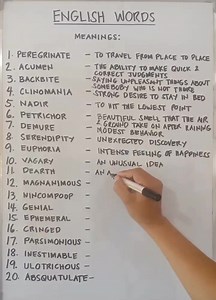 ENGLISH WORDS
MEANINGS:
1. PEREGRINATE - TO TRAVEL FROM PLACE TO PLACE
2. ACUMEN - THE ABILITY TO MAKE QUICK &
CORRECT JUDGMENTS
3. BACKBITE - SAYING UNPLEASANT THINGS ABOUT
SOMEBODY WHO IS NOT THERE
4. CLINOMANIA - STRONG DESIRE TO STAY IN BED
5. NADIR - TO HIT THE LOWEST POINT
6. PETRICHOR - BEAUTIFUL SMELL THAT THE AIR
& GROUND TAKE ON AFTER RAINING
7. DEMURE - MODEST BEHAVIOR
8. SERENDIPITY - UNEXPECTED DISCOVERY
9. EUPHORIA - INTENSE FEELING OF HAPPINESS
10. VAGARY - AN UNUSUAL IDEA
11. DEARTH - AN A
12. MAGNANIMOUS -
13. NINCOMPOOP -
14. GENIAL -
15. EPHEMERAL -
16. CRINGED -
17. PARSIMONIOUS -
18. INESTIMABLE -
19. ULOTRICHOUS -
20. ABSQUATULATE -